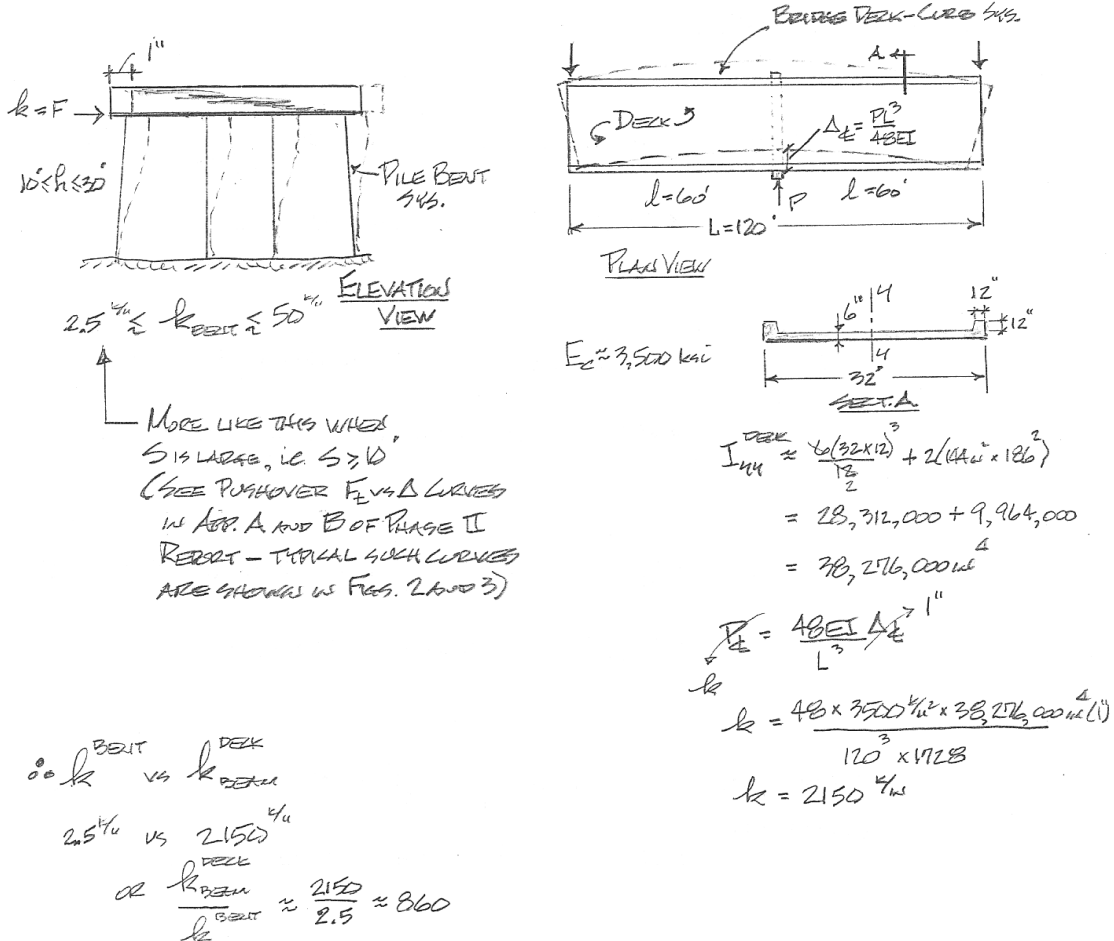 1"
k = F
10' ≤ h ≤ 30'
PILE BENT
SYS.
ELEVATION
VIEW
2.5 k/" ≲ k BENT ≲ 50 k/"
MORE LIKE THIS WHEN
S IS LARGE, i.e. S ≥ 10'
(SEE PUSHOVER Ft VS Δ CURVES
IN APP. A AND B OF PHASE II
REPORT - TYPICAL SUCH CURVES
ARE SHOWN IN FIGS. 2 AND 3)
∴ k BENT VS k DECK BEAM
2.5 k/" VS 2150 k/"
OR k DECK BEAM / k BENT ≈ 2150/2.5 ≈ 860
BRIDGE DECK-CURB SYS.
A
DECK
Δ℄ = PL³/48EI
l=60'
P
l=60'
L=120'
PLAN VIEW
6"
4
12"
12"
4
Ec ≈ 3,500 ksi
32'
SECT. A
I44 DECK ≈ 6(32×12)³/12 + 2(144in² × 186²)
2
= 28,312,000 + 9,964,000
= 38,276,000 in⁴
P℄ = 48EI/L³ Δ℄
1"
k
k = 48 × 3500 k/in² × 38,276,000 in⁴ (1") / 120³ × 1728
k = 2150 k/in